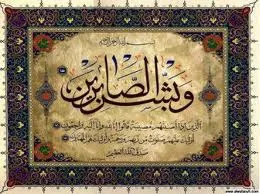 بسم الله الرحمن الرحيم
وبشر الصابرين
الذين إذا أصابتهم مصيبة قالوا إنا لله وإنا إليه راجعون
أولئك عليهم صلوات من ربهم ورحمة وأولئك هم المهتدون
صدق الله العظيم